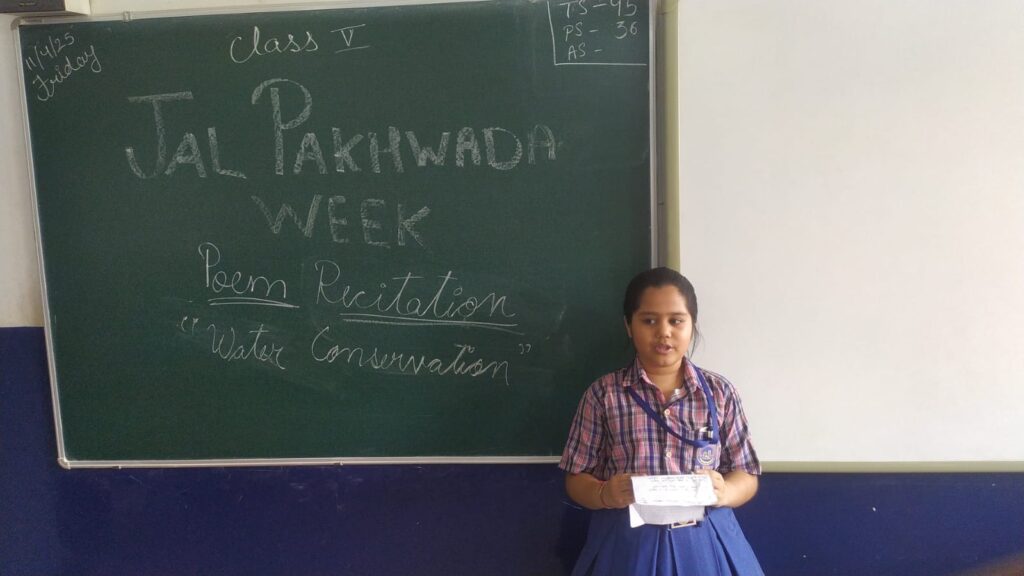 11/4/25
Friday
Class V
TS - 45
PS - 36
AS -
JAL PAKHWADA
WEEK
Poem Recitation
"Water Conservation"